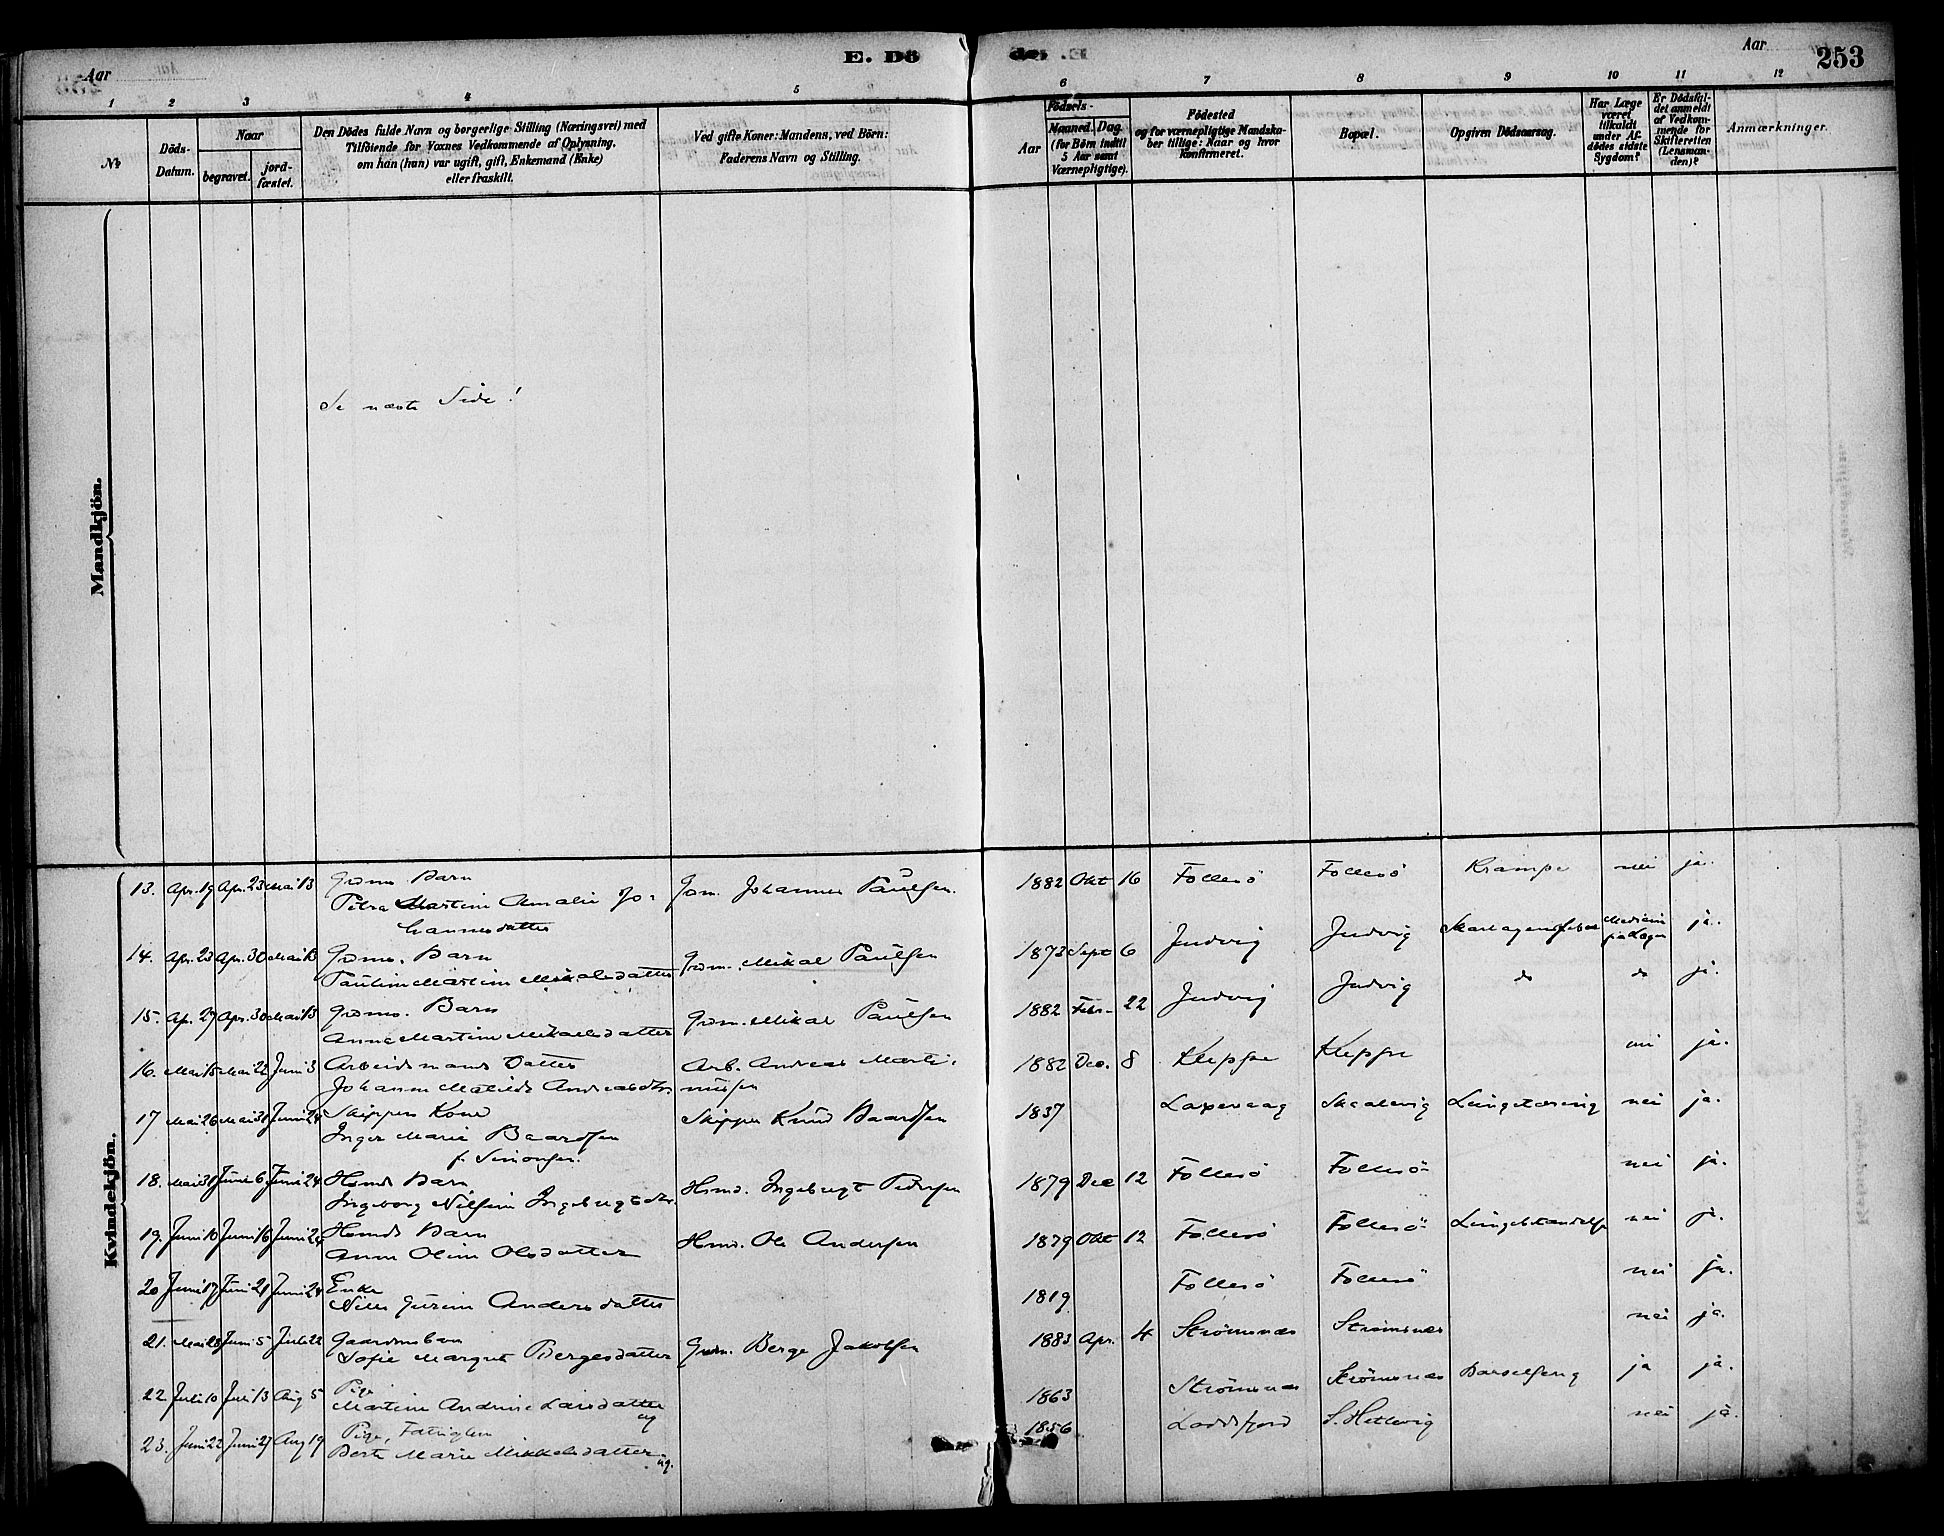 E. Dö
de. E.
Aar
Aar
253
1 2 3 4 5 6 7 8 9 10 11 12
№
Döds-
Datum.
Naar
begravet.
jord-
fæstet.
Den Dödes fulde Navn og borgerlige Stilling (Næringsvei) med
Tilföiende for Voxnes Vedkommende af Oplysning,
om han (hun) var ugift, gift, Enkemand (Enke)
eller fraskilt.
Ved gifte Koner: Mandens, ved Börn:
Faderens Navn og Stilling.
Födsels-
Aar
Maaned. Dag.
(for Börn indtil
5 Aar samt
Værnepligtige).
Födested
og for værnepligtige Mandska-
ber tillige: Naar og hvor
konfirmeret.
Bopæl.
Opgiven Dödsaarsag.
Har Læge
været
tilkaldt
under Af-
dödes sidste
Sygdom?
Er Dödsfal-
det anmeldt
af Vedkom-
mende for
Skifteretten
(Lensman-
den)?
Anmærkninger.
Mandkjön.
Se næste Side!
Kvindekjön.
13. Apr. 19 Apr. 23 Mai 13 Grdms. Barn
Petra Martine Amalie Jo-
hannesdatter
Gdm. Johannes Paulsen. 1882 Okt 16 Follesö Follesö Krampe nei ja.
14. Apr. 23 Apr. 30 Mai 13 Grdms. Barn
Pauline Martine Mikalsdatter Grdm. Mikal Paulsen 1873 Sept 6 Judvig Judvig Skarlagensfeber Medicin fra Læge ja.
15. Apr. 27 Apr. 30 Mai 13 Grdms. Barn
Anne Martine Mikalsdatter Grdm. Mikal Paulsen 1882 Febr. 22 Judvig Judvig do do ja.
16. Mai 15 Mai 22 Juni 3 Arbeidsmands Datter
Johanne Matilde Andreasdtr. Arb. Andreas Marti-
nussen 1882 Dec. 8 Kleppe Kleppe nei ja.
17 Mai 26 Mai 31 Juni 24 Skippers Kone
Inger Marie Baardsen
f. Simonsen. Skipper Knud Baardsen 1837 Laxevaag Skaalevig Lungetæring nei ja.
18. Mai 31 Juni 6 Juni 24 Hsmds Barn
Ingeborg Nilsine Ingebrigtsdtr. Hsmd. Ingebrigt Pedersen 1879 Dec 12 Follesö Follesö nei ja.
19. Juni 10 Juni 16 Juni 24 Hsmds Barn
Anne Oline Olsdatter Hsmd. Ole Andersen 1879 Okt 12 Follesö Follesö Lungebetændelse nei ja.
20 Juni 17 Juni 21 Juni 24 Enke
Nille Gurine Andersdatter 1819 Follesö Follesö nei ja.
21. Mai 28 Juni 5 Juli 22 Gaardmsbarn
Sofie Margret Bergesdatter Grdm. Berge Jakobsen 1883 Apr. 4 Strömsnæs Strömsnæs nei ja.
22 Juli 10 Juli 13 Aug 5 Pige
Martine Andrine Larsdatter ug 1863 Strömsnæs Strömsnæs Barselseng ja ja.
23. Juni 22 Juni 27 Aug 19 Pige, Fattiglem
Berte Marie Mikkelsdatter ug. 1856 Loddefjord S. Hetlevig nei ja.